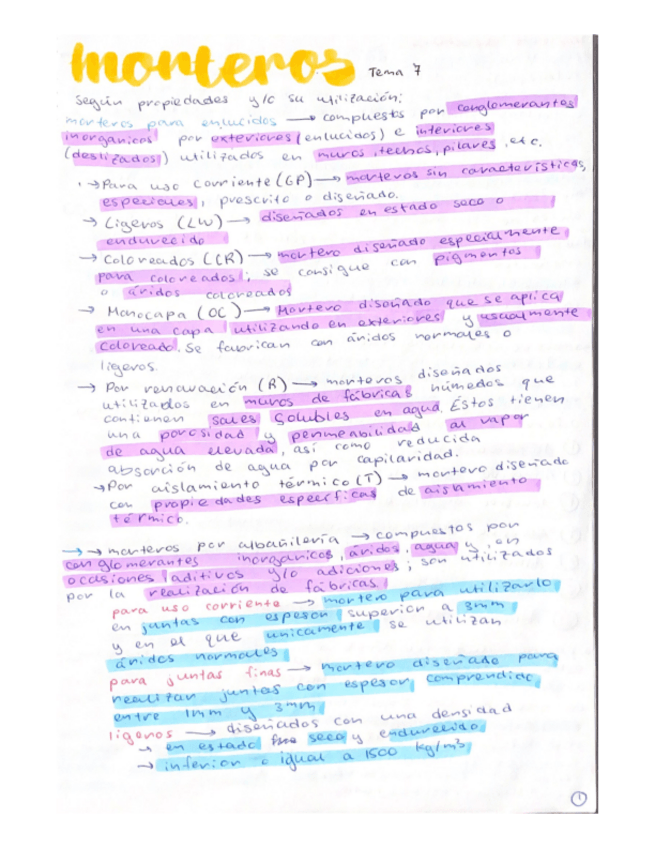 morteros Tema 7
Según propiedades y/o su utilización:
morteros para enlucidos → compuestos por conglomerantes
inorgánicos por exteriores (enlucidos) e interiores
(deslizados) utilizados en muros, techos, pilares, etc.
→ Para uso corriente (GP) → morteros sin características
especiales, prescrito o diseñado.
→ Ligeros (LW) → diseñados en estado seco o
endurecido
→ Coloreados (CR) → mortero diseñado especialmente
para coloreados; se consigue con pigmentos
o áridos coloreados
→ Monocapa (OC) → Mortero diseñado que se aplica
en una capa utilizando en exteriores y usualmente
coloreado. Se fabrican con áridos normales o
ligeros.
→ Por renovación (R) → morteros diseñados
utilizados en muros de fábricas húmedos que
contienen sales solubles en agua. Éstos tienen
una porosidad y permeabilidad al vapor
de agua elevada, así como reducida
absorción de agua por capilaridad.
→ Por aislamiento térmico (T) → mortero diseñado
con propiedades específicas de aislamiento
térmico.
→ → morteros por albañilería → compuestos por
conglomerantes inorgánicos, áridos, agua y, en
ocasiones aditivos y/o adiciones; son utilizados
por la realización de fábricas.
para uso corriente → mortero para utilizarlo
en juntas con espesor superior a 3mm
y en el que unicamente se utilizan
áridos normales
para juntas finas → mortero diseñado para
realizar juntas con espesor comprendido
entre 1mm y 3mm
ligeros → diseñados con una densidad
→ en estado seco y endurecido
→ inferior o igual a 1500 kg/m³
1